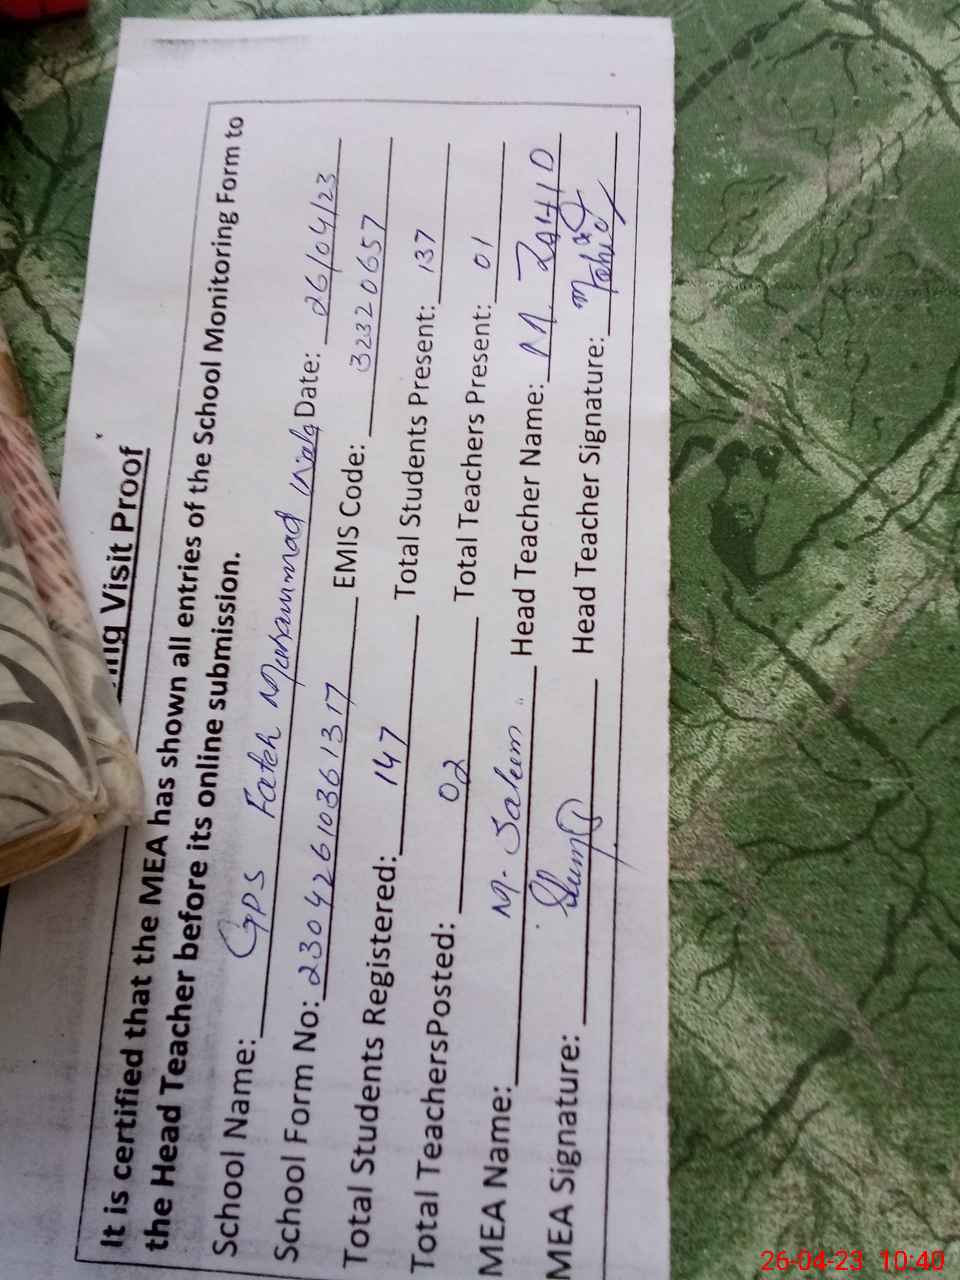 ing Visit Proof
It is certified that the MEA has shown all entries of the School Monitoring Form to
the Head Teacher before its online submission.
School Name: GPS Fateh Muhammad Wala Date: 26/04/23
School Form No: 23042610361317 EMIS Code: 32320657
Total Students Registered: 147 Total Students Present: 137
Total TeachersPosted: 02 Total Teachers Present: 01
MEA Name: M. Saleem Head Teacher Name: M. ZAHID
MEA Signature: Head Teacher Signature:
26-04-23 10:40